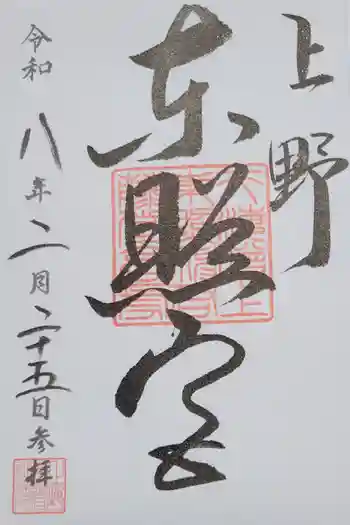 上野
東照宮
令和八年二月二十五日参拝